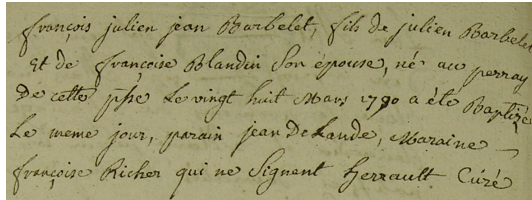 françois julien jean Barbelet, fils de julien Barbelet
et de françoise Blandin Son épouse, né au perray
De cette psse Le vingt huit Mars 1790 a éte Baptizé
Le meme jour, parain jean DeLande, Maraine
françoise Richer qui ne Signent herrault Curé